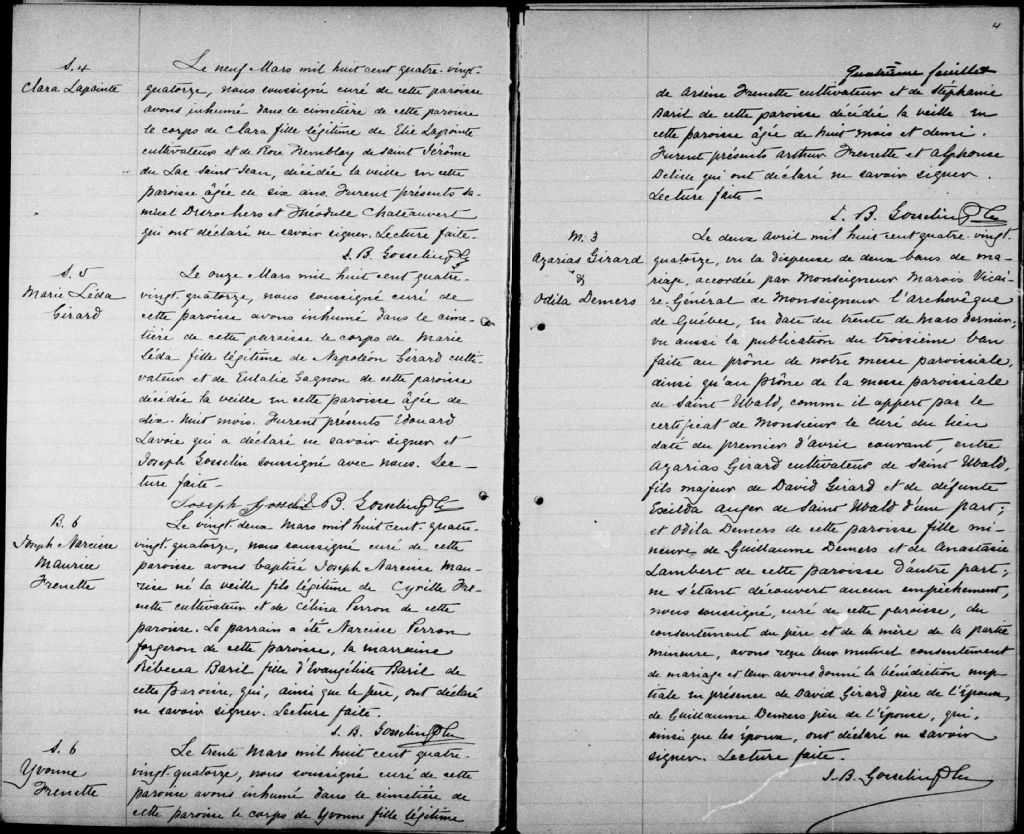 S. 4
Clara Lapointe
Le neuf Mars mil huit cent quatre-vingt-
quatorze, nous soussigné curé de cette paroisse
avons inhumé dans le cimetière de cette paroisse
le corps de Clara fille légitime de Elie Lapointe
cultivateur et de Rose Tremblay de Saint Jérôme
du Lac Saint Jean, décédée la veille en cette
paroisse âgée de six ans. Furent présents Sa-
muel Desrochers et Théodule Chateauvert
qui ont déclaré ne savoir signer. Lecture faite.
J. B. Gosselin Ptre
S. 5
Marie Léda
Girard
Le onze Mars mil huit cent quatre-
vingt-quatorze, nous soussigné curé de
cette paroisse avons inhumé dans le cime-
tière de cette paroisse le corps de Marie
Léda fille légitime de Napoléon Girard culti-
vateur et de Eulalie Gagnon de cette paroisse
décédée la veille en cette paroisse âgée de
dix-huit mois. Furent présents Edouard
Lavoie qui a déclaré ne savoir signer et
Joseph Gosselin soussigné avec nous. Lec-
ture faite.
Joseph Gosselin J. B. Gosselin Ptre
B. 6
Joseph Narcisse
Maurice
Frenette
Le vingt deux Mars mil huit cent-quatre-
vingt-quatorze, nous soussigné curé de cette
paroisse avons baptisé Joseph Narcisse Mau-
rice né la veille fils légitime de Cyrille Fre-
nette cultivateur et de Célina Perron de cette
paroisse. Le parrain a été Narcisse Perron
forgeron de cette paroisse, la marraine
Rébecca Baril fille d'Evangéliste Baril de
cette paroisse, qui, ainsi que le père, ont déclaré
ne savoir signer. Lecture faite.
J. B. Gosselin Ptre
S. 6
Yvonne
Frenette
Le trente Mars mil huit cent quatre-
vingt-quatorze, nous soussigné curé de cette
paroisse avons inhumé dans le cimetière de
cette paroisse le corps de Yvonne fille légitime
4
Quatrième feuillet
de Arsène Frenette cultivateur et de Stéphanie
Baril de cette paroisse décédée la veille en
cette paroisse âgée de huit mois et demi.
Furent présents Arthur Frenette et Alphonse
Delisle qui ont déclaré ne savoir signer.
Lecture faite -
J. B. Gosselin Ptre
M. 3
Azarias Girard
&
Odila Demers
Le deux Avril mil huit cent quatre-vingt-
quatorze, vu la dispense de deux bans de ma-
riage, accordée par Monseigneur Marois Vicai-
re-Général de Monseigneur l'archevêque
de Québec, en date du trente de Mars dernier,
vu aussi la publication du troisième ban
faite au prône de notre messe paroissiale,
ainsi qu'au prône de la messe paroissiale
de Saint Ubald, comme il appert par le
certificat de Monsieur le curé du lieu
daté du premier d'avril courant, entre
Azarias Girard cultivateur de Saint Ubald,
fils majeur de David Girard et de défunte
Exilda Auger de Saint Ubald d'une part;
et Odila Demers de cette paroisse fille mi-
neure de Guillaume Demers et de Anastasie
Lambert de cette paroisse d'autre part;
ne s'étant découvert aucun empêchement,
nous soussigné, curé de cette paroisse, du
consentement du père et de la mère de la partie
mineure, avons reçu leur mutuel consentement
de mariage et leur avons donné la bénédiction nup-
tiale en présence de David Girard père de l'époux,
de Guillaume Demers père de l'épouse, qui,
ainsi que les époux, ont déclaré ne savoir
signer. Lecture faite.
J. B. Gosselin Ptre